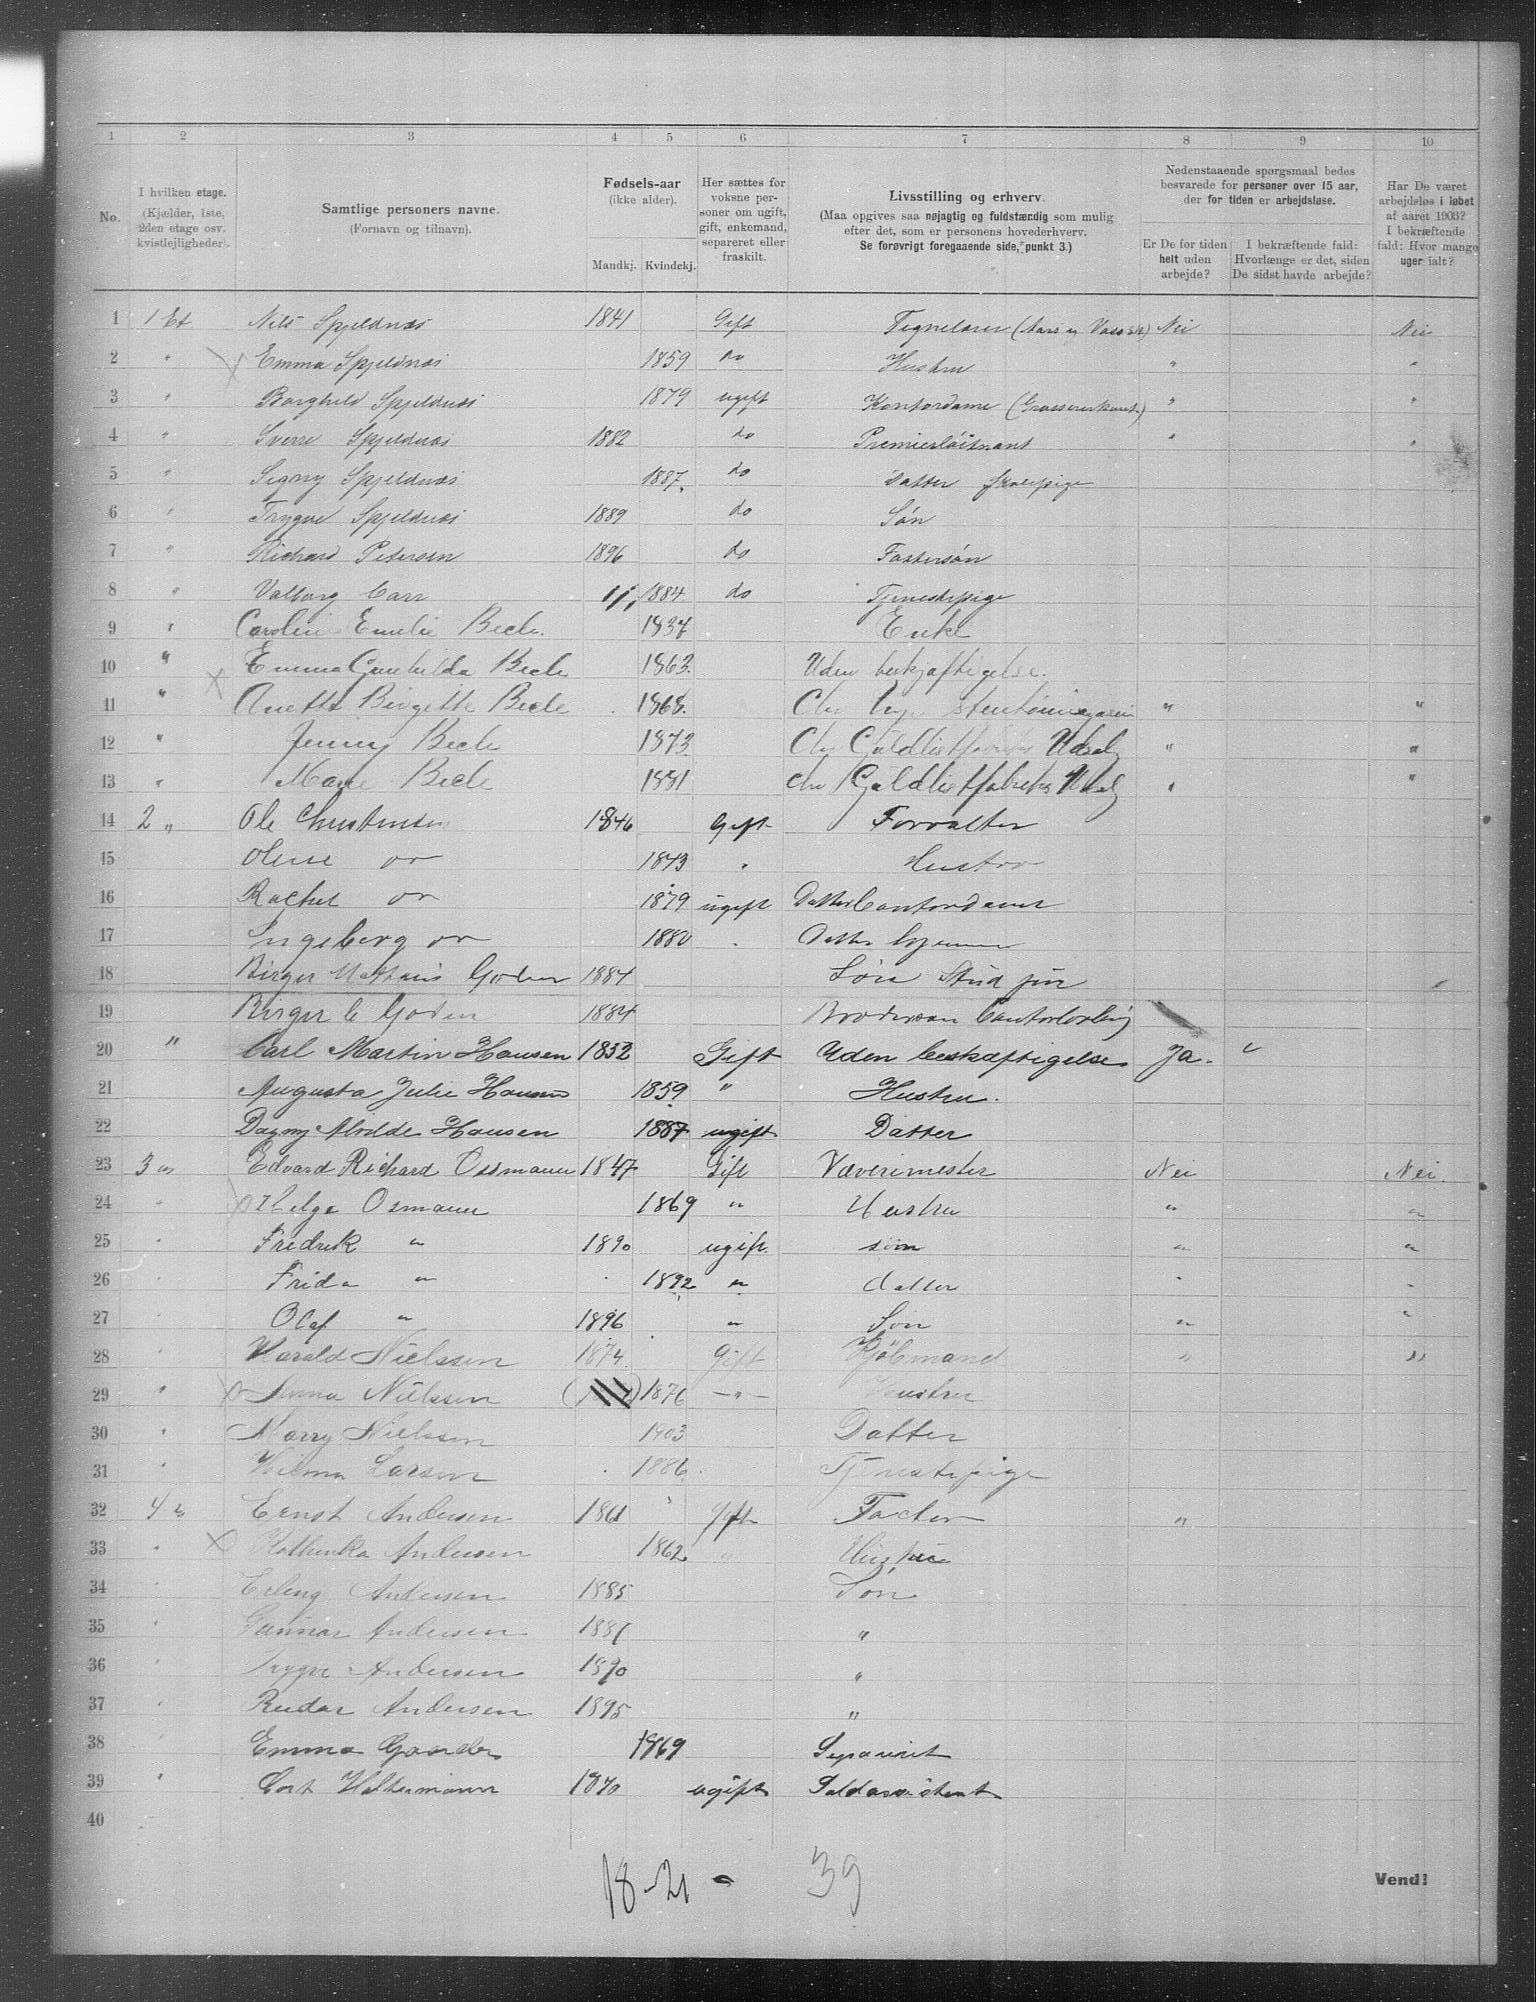 1 2 3 4 5 6 7 8 9 10
No.
I hvilken etage.
(Kjælder, 1ste, 2den etage osv. kvistlejligheder).
Samtlige personers navne.
(Fornavn og tilnavn).
Fødsels-aar
(ikke alder).
Mandkj. Kvindekj.
Her sættes for voksne personer om ugift, gift, enkemand, separeret eller fraskilt.
Livsstilling og erhverv.
(Maa opgives saa nøjagtig og fuldstændig som mulig efter det, som er personens hovederhverv.
Se forøvrigt foregaaende side, punkt 3.)
Nedenstaaende spørgsmaal bedes besvarede for personer over 15 aar, der for tiden er arbejdsløse.
Er De for tiden helt uden arbejde?
I bekræftende fald: Hvorlænge er det, siden De sidst havde arbejde?
Har De været arbejdsløs i løbet af aaret 1903? I bekræftende fald: Hvor mange uger ialt?
1 1 Et Nils Spjeldnæs 1841 Gift Tegnelærer (Aars og Voss sk) Nei Nei
2 " Emma Spjeldnæs 1859 do Hustru " "
3 " Borghild Spjeldnæs 1879 ugift Kontordame " "
4 " Sverre Spjeldnæs 1882 do Premierløitnant " "
5 " Signy Spjeldnæs 1887 do Datter Skolepige
6 " Trygve Spjeldnæs 1889 do Søn
7 " Richard Petersen 1896 do Fostersøn
8 " Valborg Carr 1884 do Tjenestepige
9 " Caroline Emelie Beck. 1837 Enke
10 " Emma Gunhilda Beck 1863 Uden beskjæftigelse.
11 " Anette Birgitte Beck 1868. " "
12 " Jenny Beck 1873 Guldlistfabriks Udsalg " "
13 " Marie Beck 1881 Guldlistfabriks Udsalg " "
14 2 " Ole Christensen 1846 Gift Forvalter
15 Oline do 1843 " Hustro
16 Rachel do 1879 ugift Datter Contordame
17 Ingeborg do 1880 " Datter hjemme
18 Birger Mathias Goden 1884 Søn Stud jur
19 Birger C Goden 1884 Brodersøn Contorlærling
20 " Carl Martin Hansen 1832 Gift Uden beskæftigelse Ja.
21 Augusta Julie Hansen 1859 " Hustru.
22 Dagny Alvilde Hansen 1887 ugift Datter
23 3 " Edvard Richard Ossmann 1847 Gift Væverimester Nei Nei.
24 " Helga Osmann 1869 " Hustru " "
25 " Fredrik " 1890 ugift søn " "
26 " Frida " 1892 " datter " "
27 " Olaf " 1896 " Søn " "
28 Harald Nielssen 1874 Gift Kjøbmand " "
29 " Anna Nielssen 1876 — " — Hustru
30 " Marry Nielssen 1903 Datter
31 " Wilma Larsen 1886. Tjenestepige
32 4 " Ernst Andersen 1861 gift Factor "
33 " Kathinka Andersen 1862 " Hustru
34 " Erling Andersen 1885 Søn
35 " Gunnar Andersen 1881 "
36 " Trygve Andersen 1890 "
37 " Reidar Andersen 1895 "
38 " Emma Gaarder 1869 Separeret
39 " Cort Haltermann 1870 ugift Toldassistent
40
18-21 - 39
Vend!